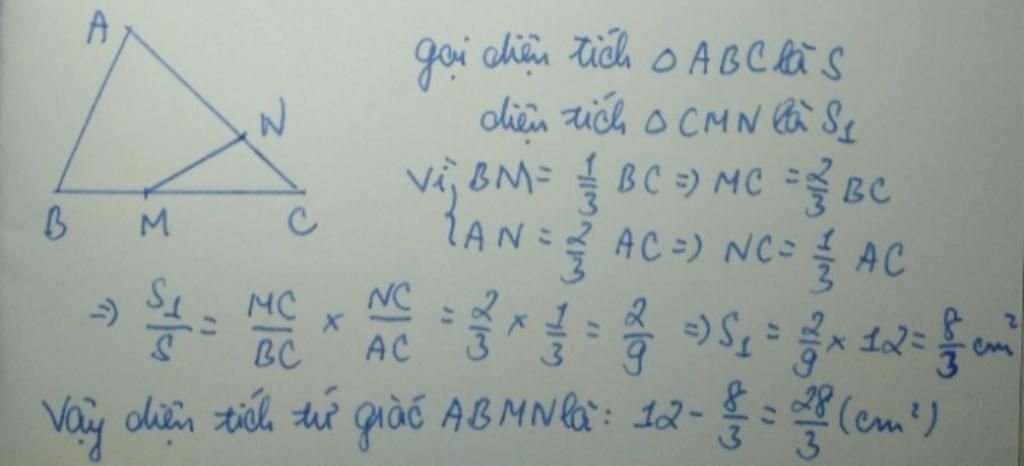 A
N
B
M
C
gọi diện tích △ ABC là S
diện tích △ CMN là S₁
Vì { BM = 1/3 BC => MC = 2/3 BC
AN = 2/3 AC => NC = 1/3 AC
=> S₁/S = MC/BC × NC/AC = 2/3 × 1/3 = 2/9 => S₁ = 2/9 × 12 = 8/3 cm²
Vậy diện tích tứ giác ABMN là: 12 - 8/3 = 28/3 (cm²)